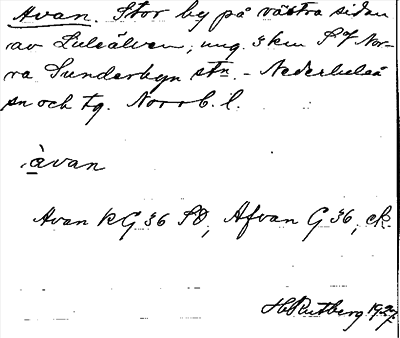 Avan. Stor by på västra sidan
av Luleälven, ung. 3 km SV Nor-
ra Sunderbyn stn. - Nederluleå
sn och tg. Norrb. l.
àvan
Avan KG 36 SO, Afvan G 36, ek.
H Rutberg 1927.